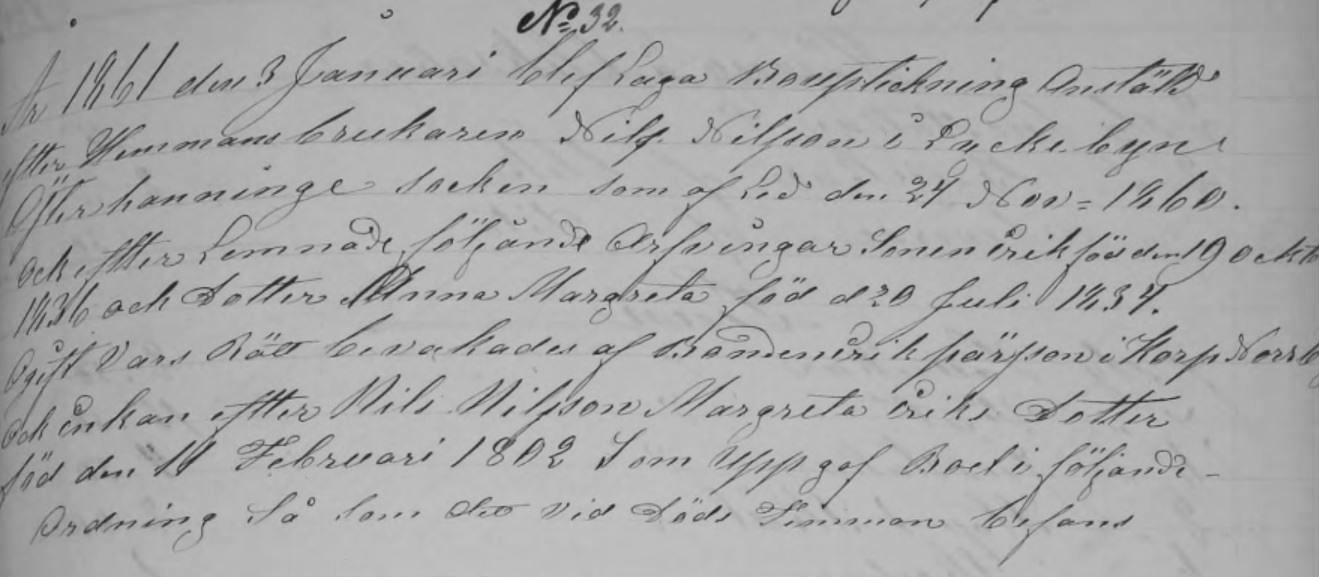 No 32.
År 1861 den 3 Januari blef Laga Bouptekning Anstäld
efter Hemmans brukaren Nils Nilsson i Lyckebyn
Östterhanninge socken som af Led den 24 Nov= 1860.
och eftter Lemnade följande Arfvingar Sonen Erik föd den 19 Octo
1836 och Dotter Anna Margreta föd d 20 Juli 1834.
Ogift Vars Rätt bevakades af Bonden Erik pärsson i Korp Norrby
och Enkan eftter Nils Nilsson Margreta Eriks Dotter
föd den 11 Februari 1802 Som Uppgaf Boet i följande
Ordning Så som det vid Döds Timman befans